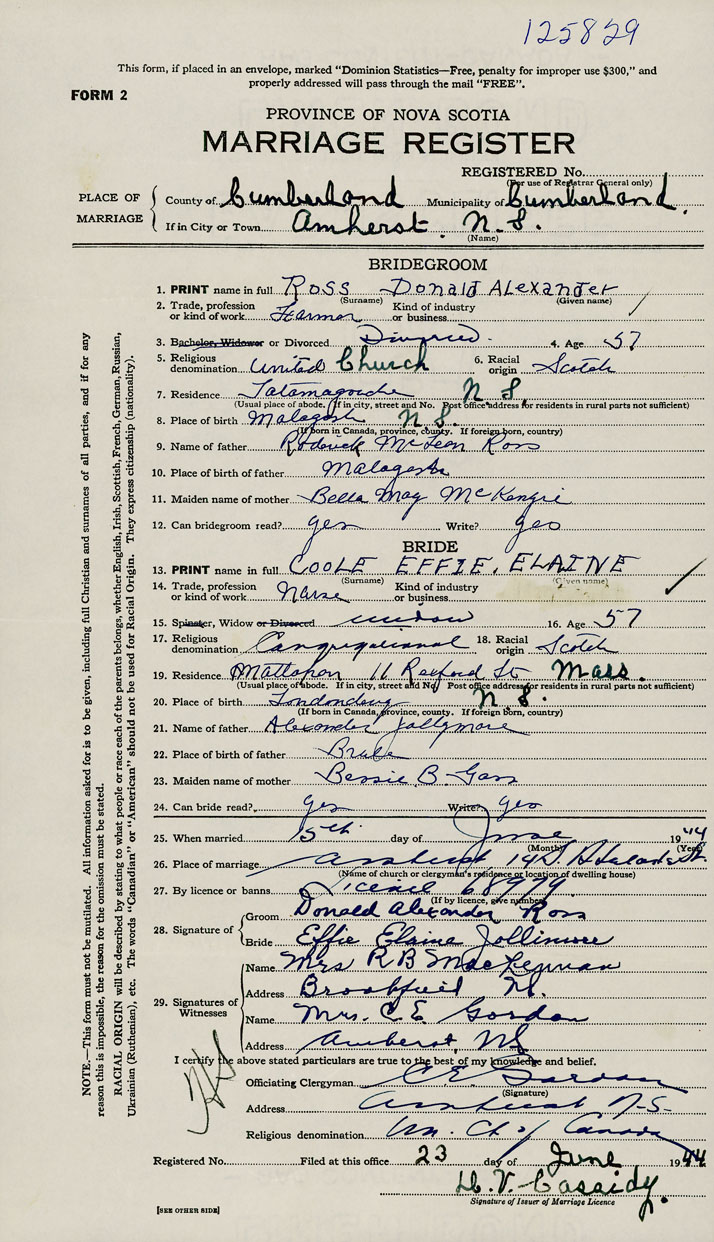 125829
This form, if placed in an envelope, marked "Dominion Statistics—Free, penalty for improper use $300," and
properly addressed will pass through the mail "FREE".
FORM 2
PROVINCE OF NOVA SCOTIA
MARRIAGE REGISTER
REGISTERED No.
(For use of Registrar General only)
PLACE OF MARRIAGE
County of Cumberland Municipality of Cumberland.
If in City or Town Amherst N.S.
(Name)
BRIDEGROOM
1. PRINT name in full ROSS DONALD ALEXANDER
(Surname) (Given name)
2. Trade, profession or kind of work Farmer Kind of industry or business
3. Bachelor, Widower or Divorced Divorced 4. Age 57
5. Religious denomination United Church 6. Racial origin Scotch
7. Residence Tatamagouche N.S.
(Usual place of abode. If in city, street and No. Post office address for residents in rural parts not sufficient)
8. Place of birth Malagash N.S.
(If born in Canada, province, county. If foreign born, country)
9. Name of father Roderick McLean Ross
10. Place of birth of father Malagash
11. Maiden name of mother Bella May McKenzie
12. Can bridegroom read? yes Write? yes
BRIDE
13. PRINT name in full COOLE EFFIE, ELAINE
(Surname) (Given name)
14. Trade, profession or kind of work Nurse Kind of industry or business
15. Spinster, Widow or Divorced widow 16. Age 57
17. Religious denomination Congregational 18. Racial origin Scotch
19. Residence Mattapan 11 Rexford St Mass.
(Usual place of abode. If in city, street and No. Post office address for residents in rural parts not sufficient)
20. Place of birth Londonderry N.S.
(If born in Canada, province, county. If foreign born, country)
21. Name of father Alexander Jollymore
22. Place of birth of father Brule
23. Maiden name of mother Bessie B Gass
24. Can bride read? yes Write? yes
25. When married 15th day of June 1944
(Month) (Year)
26. Place of marriage Amherst 14 S. St.
(Name of church or clergyman's residence or location of dwelling house)
27. By licence or banns Licence 68979
(If by licence, give number)
28. Signature of
Groom Donald Alexander Ross
Bride Effie Elaine Jollimore
29. Signatures of Witnesses
Name Mrs R B MacKennan
Address Brookfield NS.
Name Mrs. C. E. Gordon
Address Amherst, NS
I certify the above stated particulars are true to the best of my knowledge and belief.
Officiating Clergyman C E Gordon
(Signature)
Address Amherst N.S.
Religious denomination Un. Ch of Canada
Registered No. Filed at this office 23 day of June 1944
H. V. Cassidy.
Signature of Issuer of Marriage Licence
[SEE OTHER SIDE]
NOTE.—This form must not be mutilated. All information asked for is to be given, including full Christian and surnames of all parties, and if for any
reason this is impossible, the reason for the omission must be stated.
RACIAL ORIGIN will be described by stating to what people or race each of the parents belongs, whether English, Irish, Scottish, French, German, Russian,
Ukrainian (Ruthenian), etc. The words "Canadian" or "American" should not be used for Racial Origin. They express citizenship (nationality).